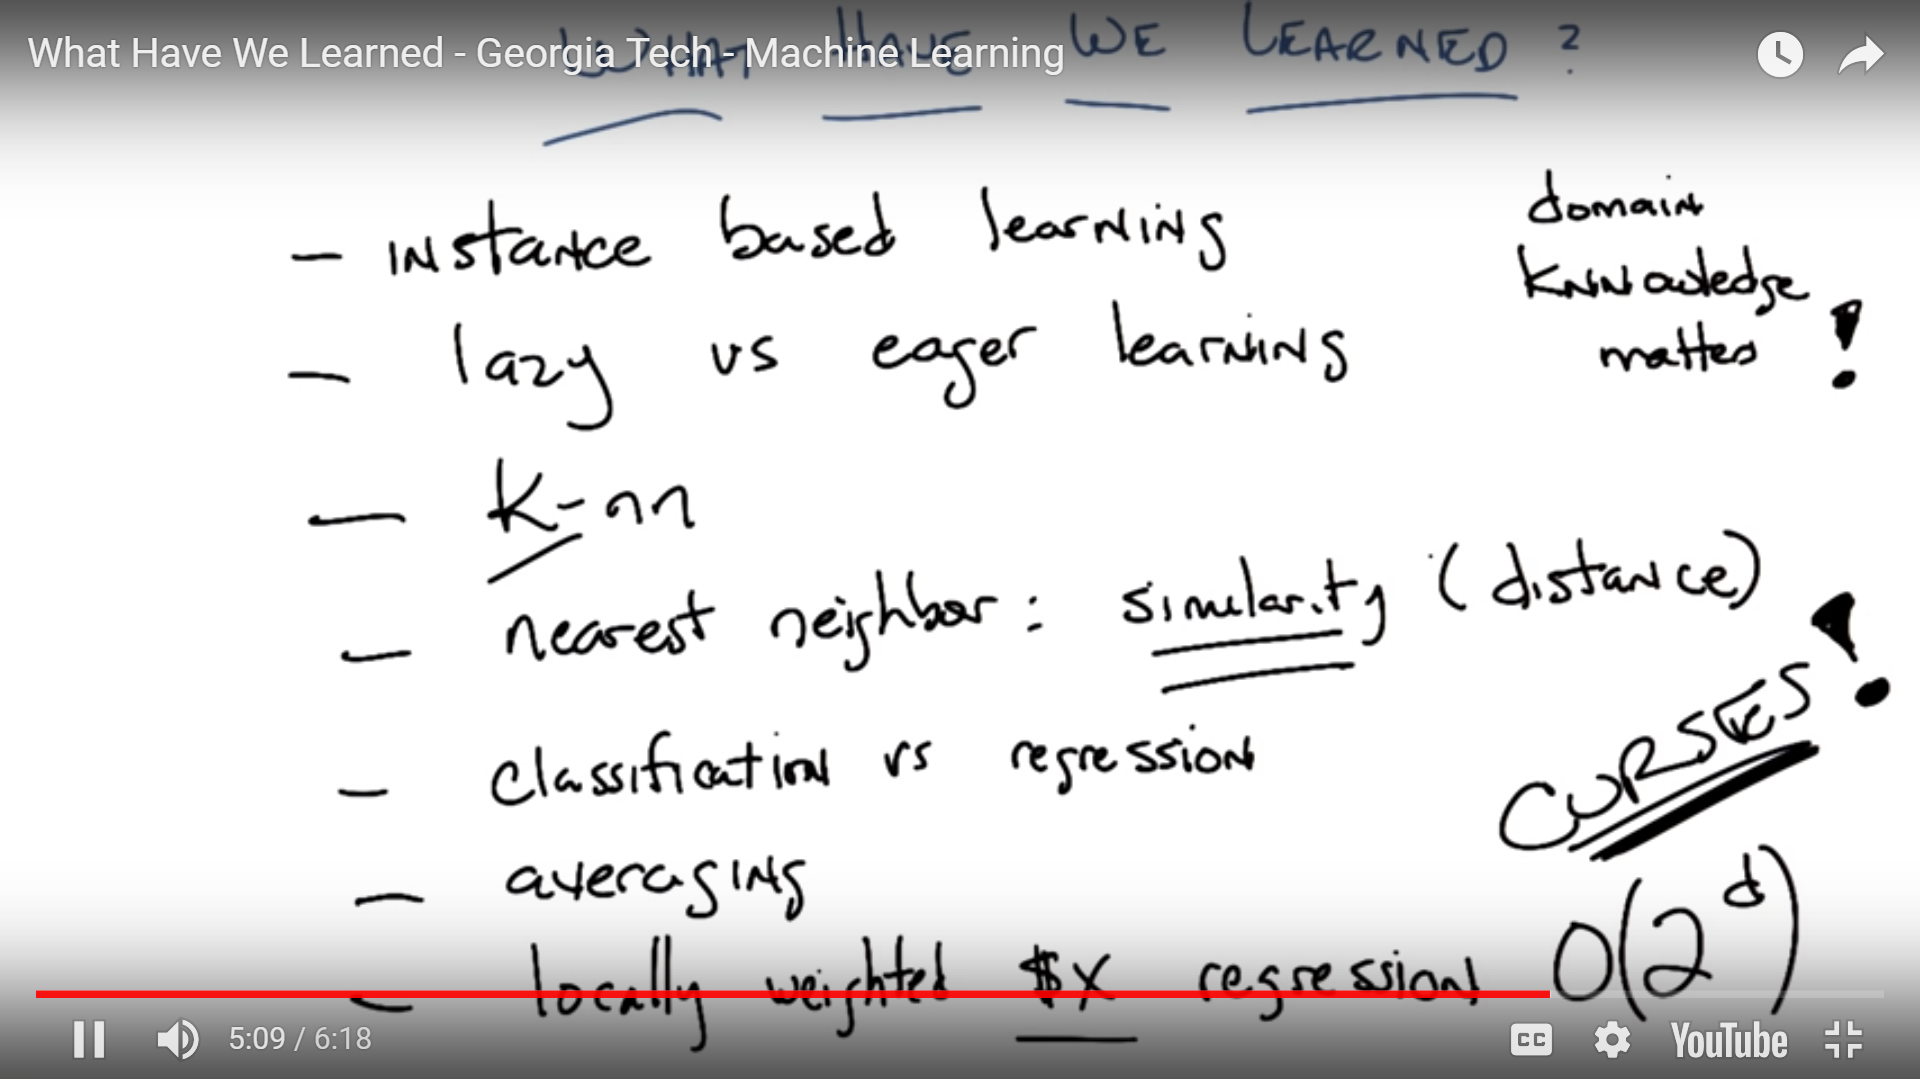 What Have We Learned - Georgia Tech - Machine Learning
WHAT HAVE WE LEARNED?
- instance based learning
- lazy vs eager learning
- K-nn
- nearest neighbor: similarity (distance)
- classification vs regression
- averaging
- locally weighted $X regression
domain
KNNowledge
matters!
CURSES!
O(2^d)
5:09 / 6:18
CC
YouTube